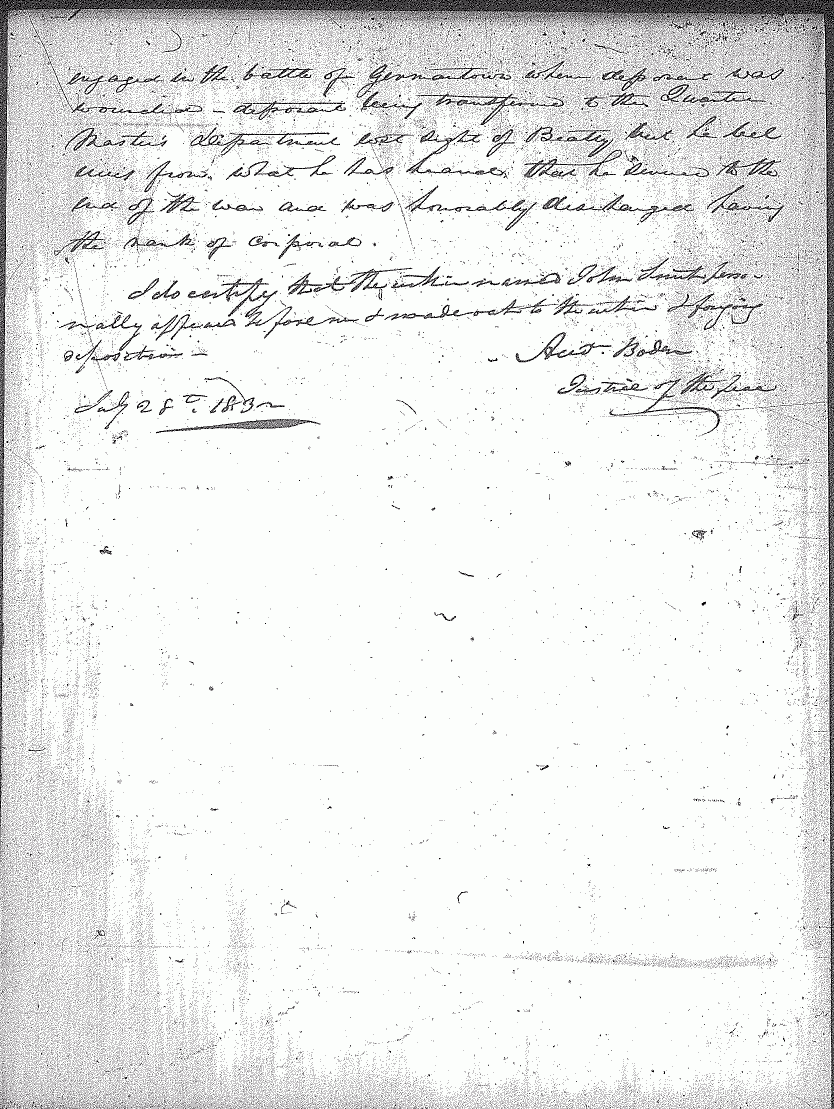 engaged in the battle of Germantown when deponant was
wounded - deponant being transferred to the Quarter
Master's department lost sight of Beaty, but he bel
eives from what he has heard, that he served to the
end of the war and was honorably discharged having
the rank of corporal.
I do certify that the within named John Smith perso-
nally appeared before me & made oath to the within & forgoing
deposition -
Boden
Justice of the peace
July 28th. 1832